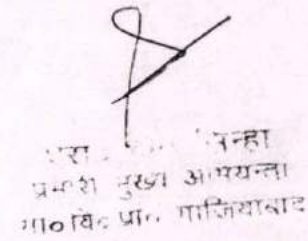 प्रभारी मुख्य अभियन्ता
गा०वि० प्रा० गाजियाबाद